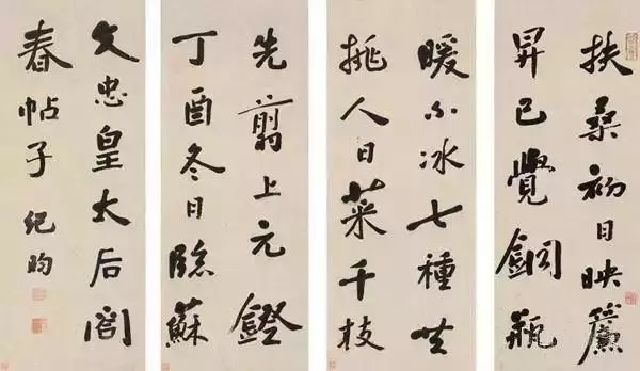 扶桑初日映簾
昇已覺銅瓶
暖不冰七種共
挑人日菜千枝
先翦上元鐙
丁酉冬日臨蘇
文忠皇太后閤
春帖子紀昀